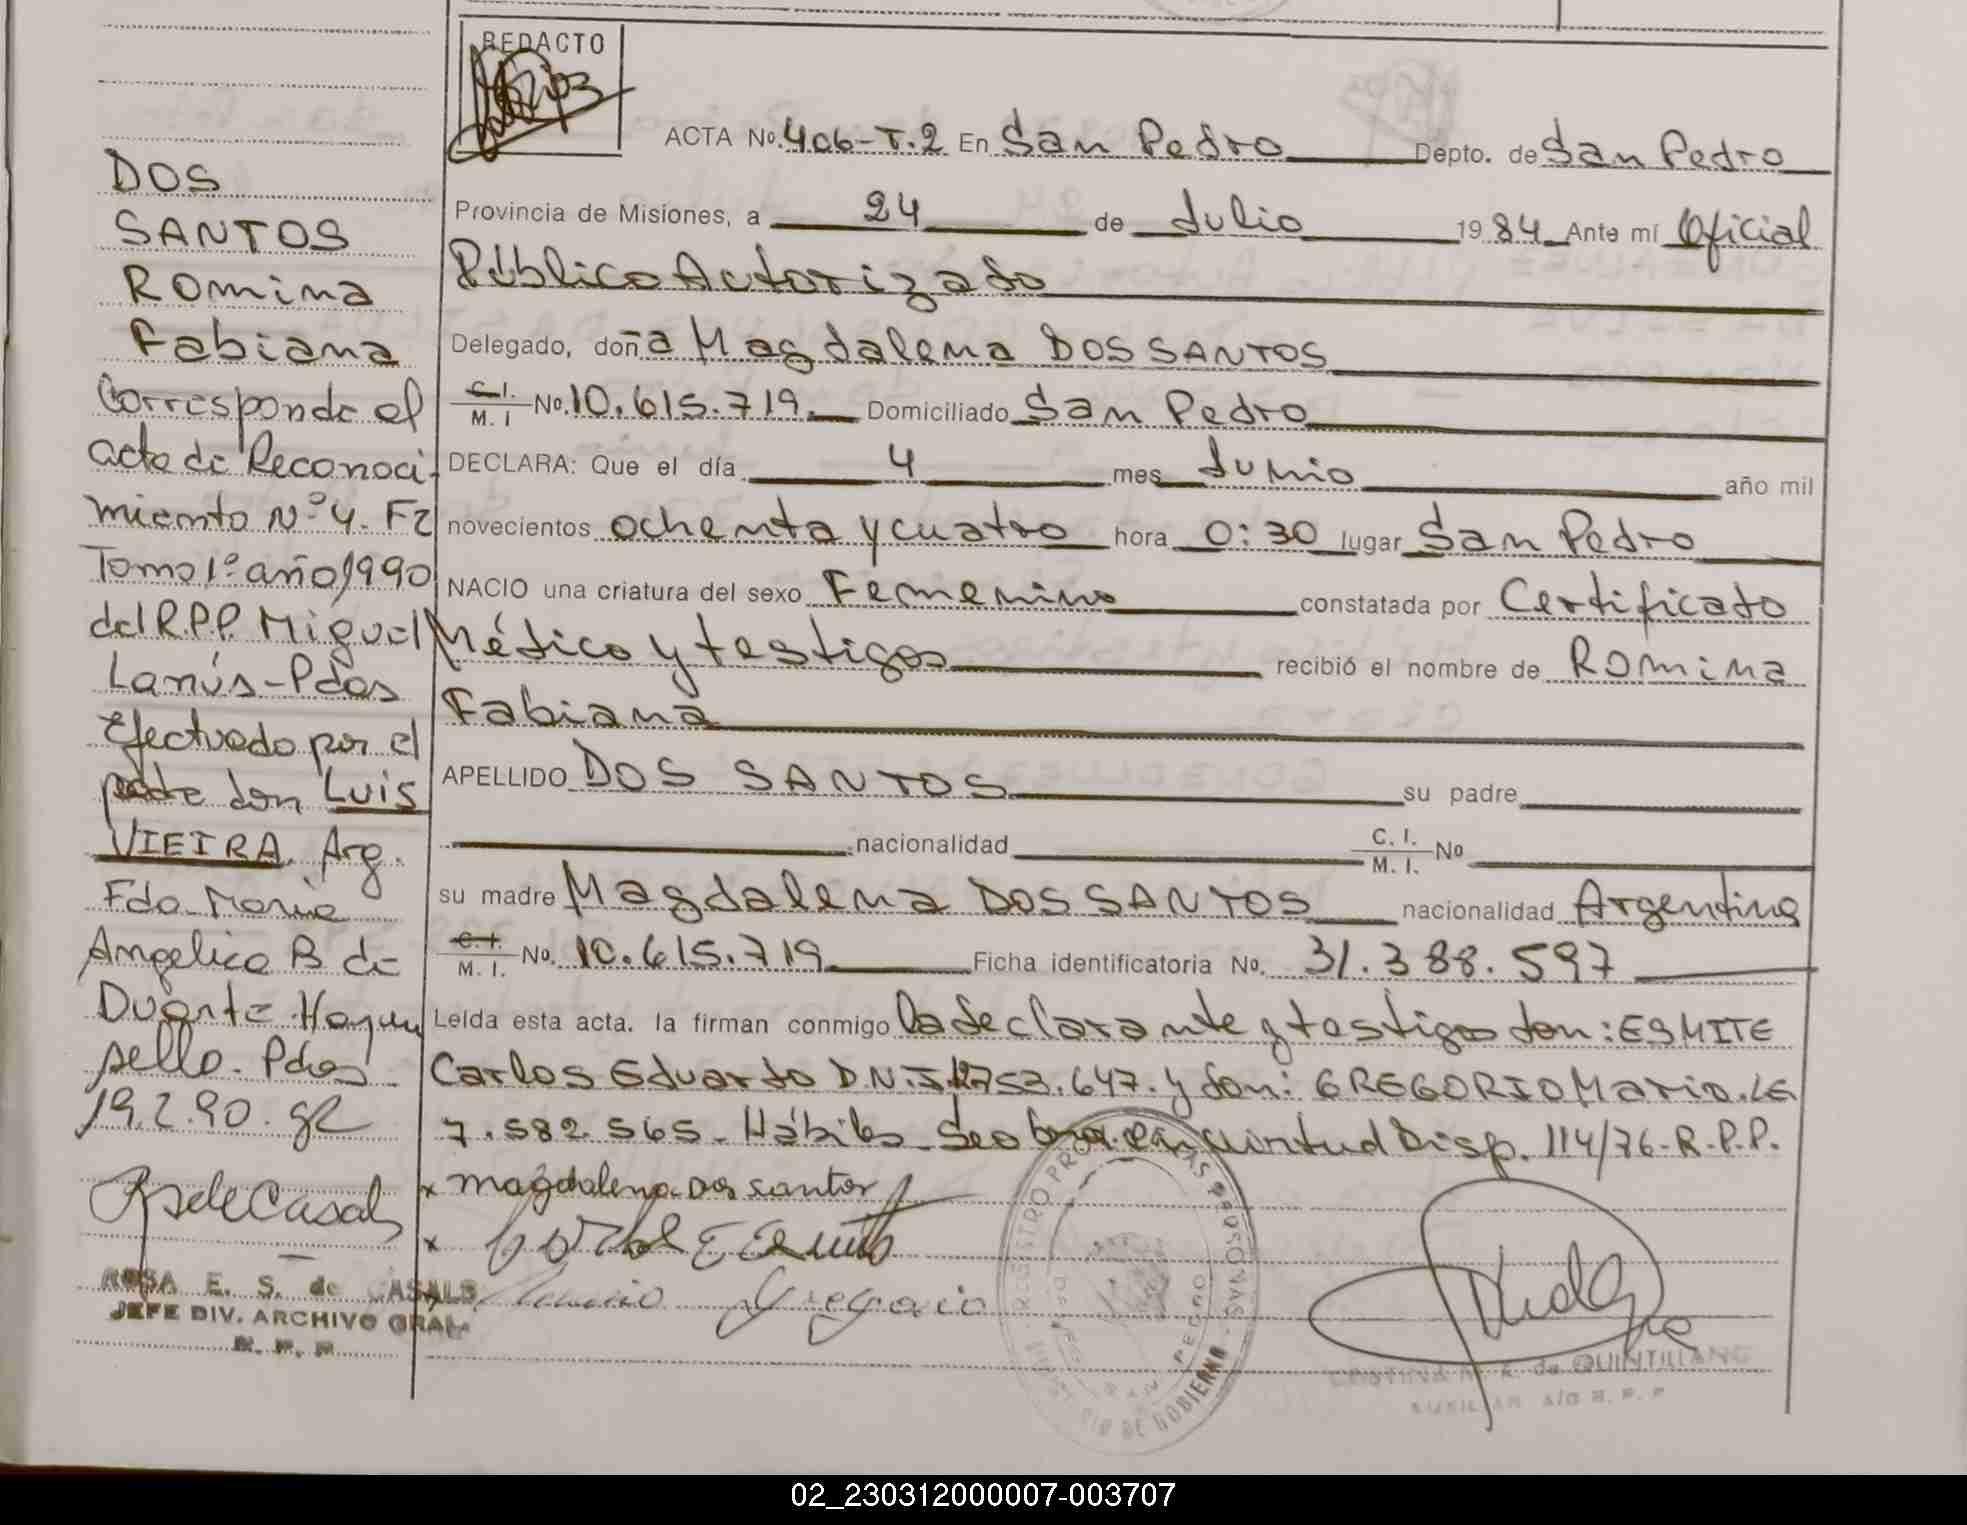 REDACTO
ACTA No. 406-T.2 En San Pedro Depto. de San Pedro
Provincia de Misiones, a 24 de Julio 1984 Ante mí Oficial
Público Autorizado
Delegado, doña Magdalena DOS SANTOS
C.I. M. I No. 10.615.719. Domiciliado San Pedro
DECLARA: Que el día 4 mes Junio año mil
novecientos ochenta y cuatro hora 0:30 lugar San Pedro
NACIO una criatura del sexo Femenino constatada por Certificado
Médico y testigos recibió el nombre de Romina
Fabiana
APELLIDO DOS SANTOS su padre
nacionalidad C. I. M. I. No
su madre Magdalena DOS SANTOS nacionalidad Argentina
C. I. M. I. No. 10.615.719 Ficha identificatoria No. 31.388.597
Leída esta acta. la firman conmigo la declarante y testigos don: ESMITE
Carlos Eduardo D.N.I. 753.647. y don: GREGORIO Mario. LE
7.582.565- Hábiles Disp. 114/76-R.P.P.
x magdalena Dos santos
x
Gregorio
DOS
SANTOS
Romina
Fabiana
Corresponde el
acta de Reconoci-
miento Nº 4. Fz
Tomo 1º año 1990
del R.P.P. Miguel
Lanús-Pdas
Efectuado por el
padre don Luis
VIEIRA. Arg.
Fdo. María
Angelica B de
Duarte. Hay un
sello. Pdas
19.2.90. gr
RsdeCasals
ROSA E. S. de CASALS
JEFE DIV. ARCHIVO GRAL
R. P. P.
REGISTRO PROVINCIAL DE LAS PERSONAS
SAN PEDRO
MINISTERIO DE GOBIERNO
CRISTINA de QUINTILLANO
AUXILIAR A/C R. P. P
02_230312000007-003707